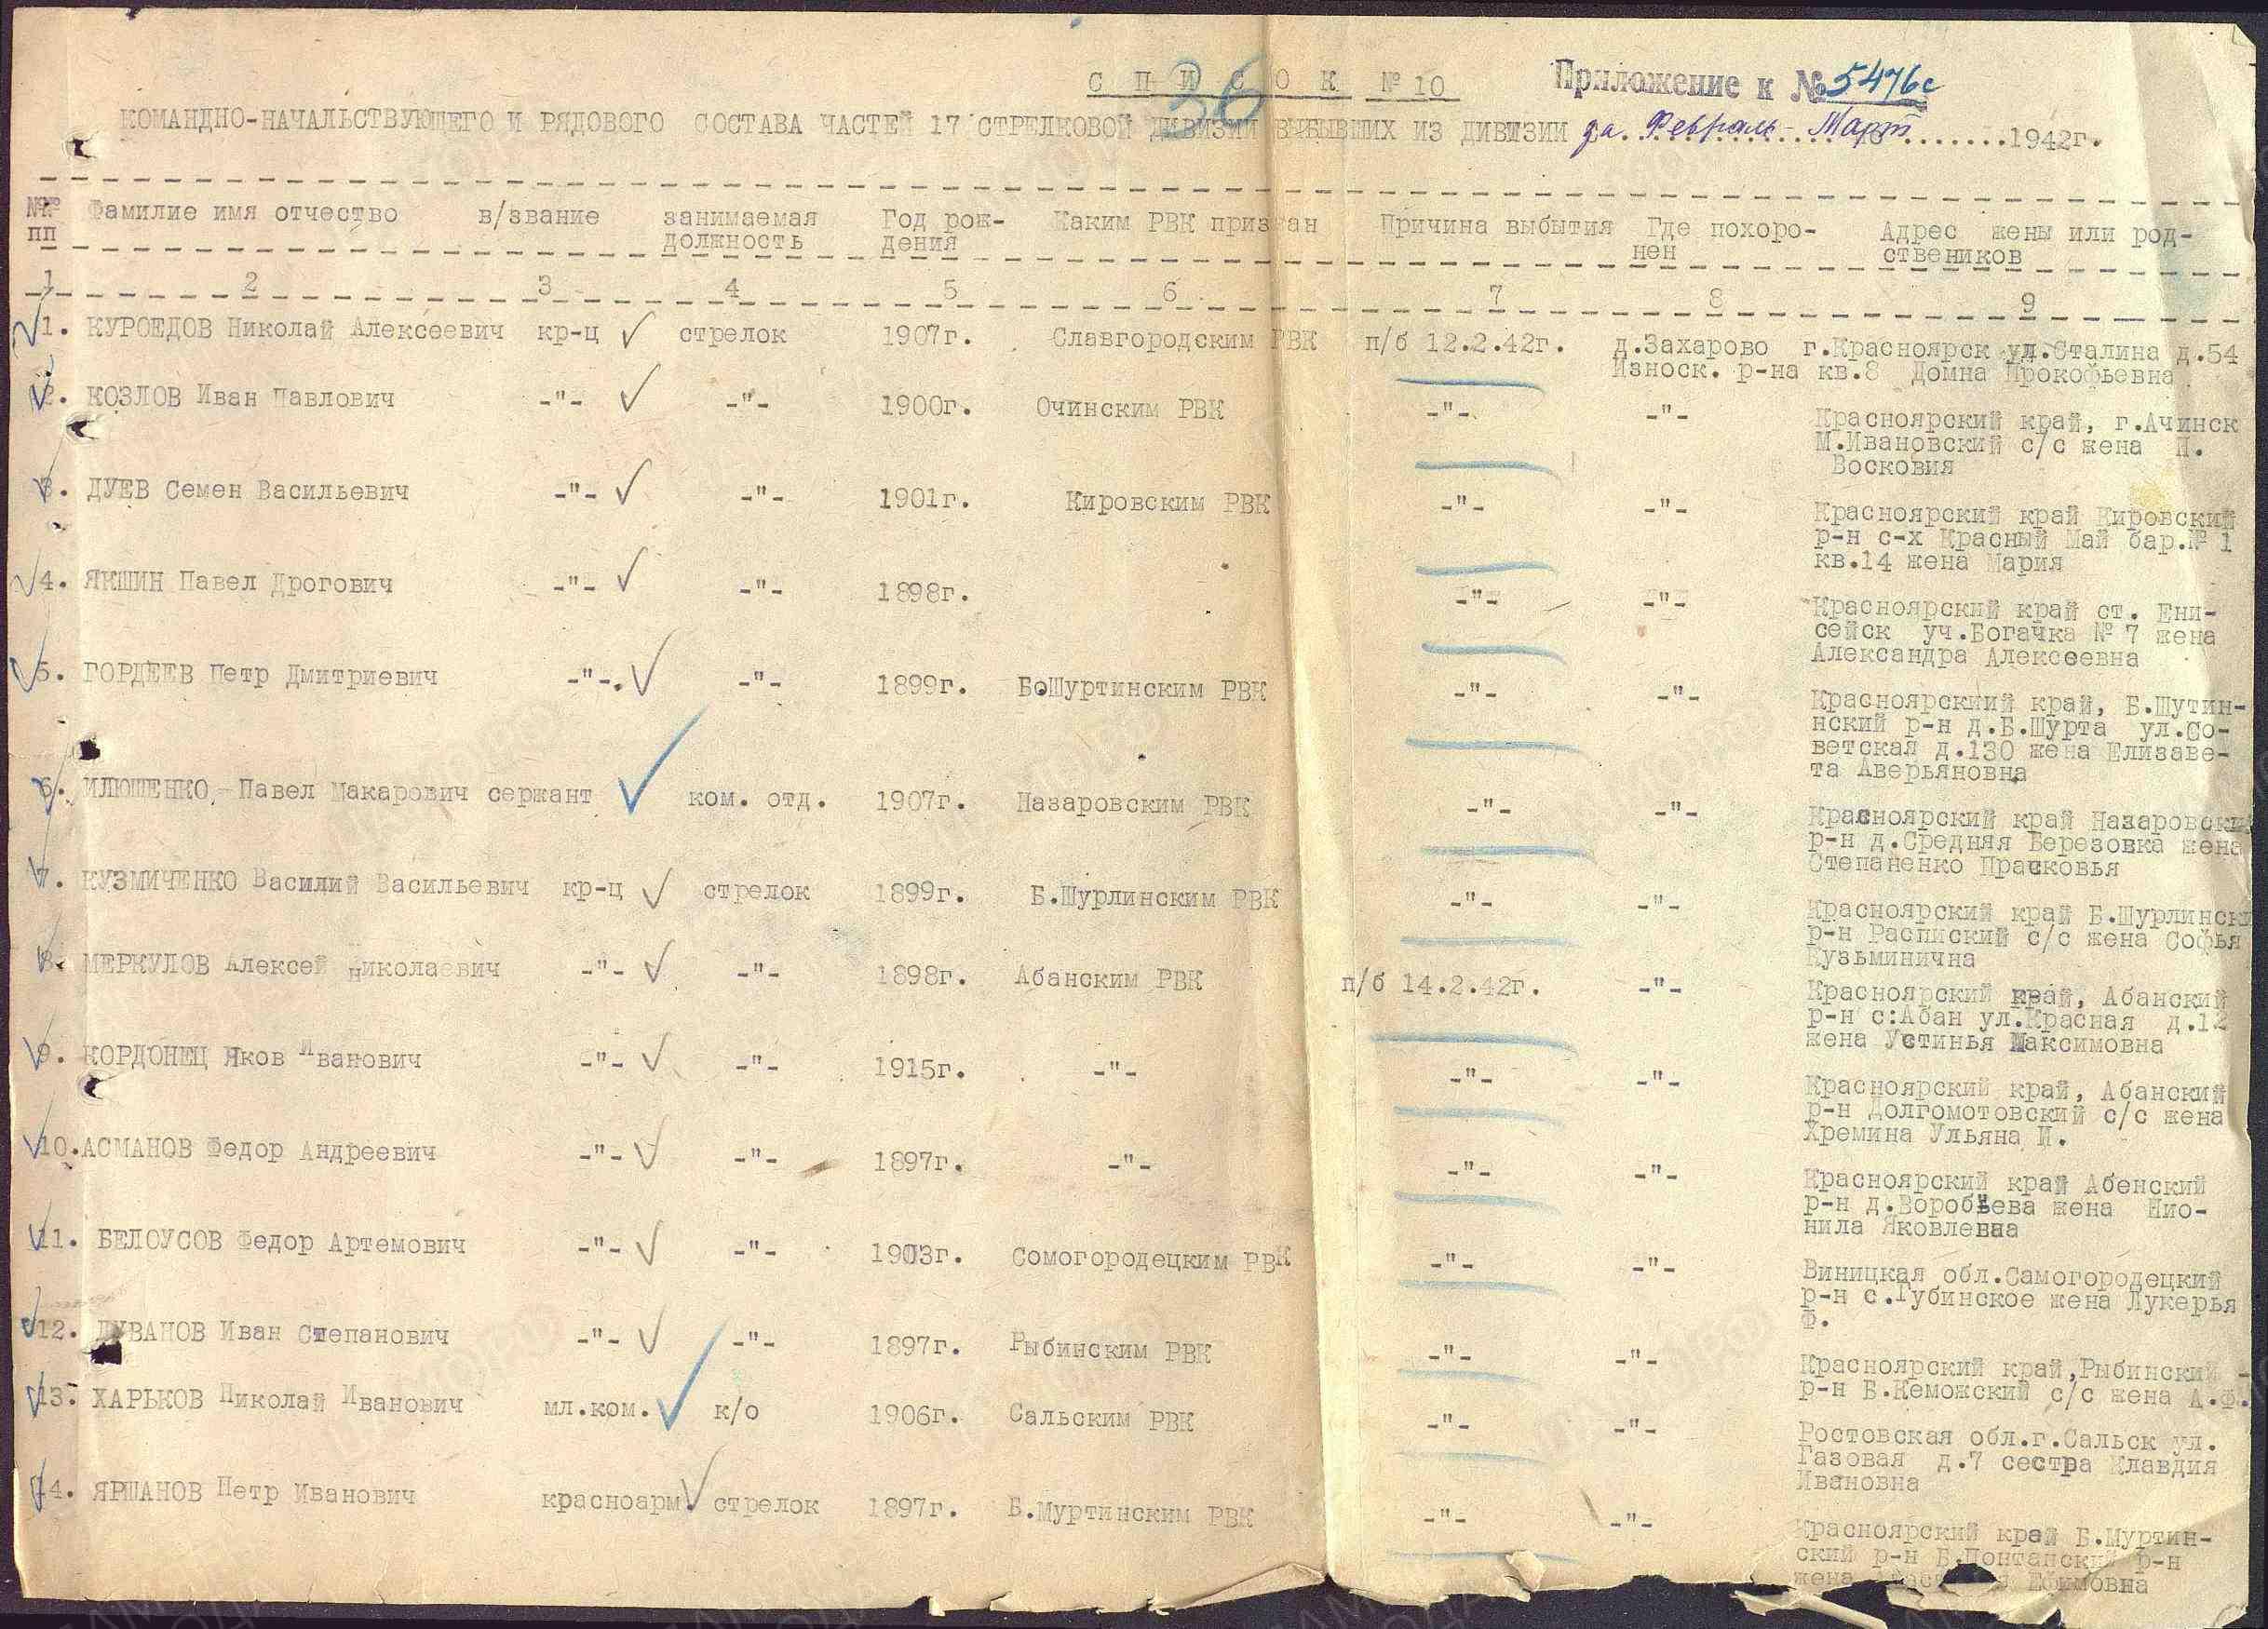 С П И С О К № 10
36
Приложение к № 5476с
КОМАНДНО-НАЧАЛЬСТВУЮЩЕГО И РЯДОВОГО СОСТАВА ЧАСТЕЙ 17 СТРЕЛКОВОЙ ДИВИЗИИ ВЫБЫВШИХ ИЗ ДИВИЗИИ за. Февраль - Март .......1942г.
№№ Фамилие имя отчество в/звание занимаемая Год рож- Каким РВК призван Причина выбытия Где похоро- Адрес жены или род-
пп должность дения нен ствеников
1 2 3 4 5 6 7 8 9
1. КУРОЕДОВ Николай Алексеевич кр-ц стрелок 1907г. Славгородским РВК п/б 12.2.42г. д.Захарово г.Красноярск ул.Сталина д.54
Износк. р-на кв.8 Домна Прокофьевна
2. КОЗЛОВ Иван Павлович -"- -"- 1900г. Очинским РВК -"- -"- Красноярский край, г.Ачинск
М.Ивановский с/с жена П.
Восковия
3. ДУЕВ Семен Васильевич -"- -"- 1901г. Кировским РВК -"- -"- Красноярский край Кировский
р-н с-х Красный Май бар.№ 1
кв.14 жена Мария
4. ЯКШИН Павел Дрогович -"- -"- 1898г. -"- -"- Красноярский край ст. Ени-
сейск уч.Богачка № 7 жена
Александра Алексеевна
5. ГОРДЕЕВ Петр Дмитриевич -"-. -"- 1899г. БоШуртинским РВК -"- -"- Красноярскиий край, Б.Шутин-
нский р-н д.Б.Шурта ул.Со-
ветская д.130 жена Елизаве-
та Аверьяновна
6. ИЛЮШЕНКО,-Павел Макарович сержант ком. отд. 1907г. Назаровским РВК -"- -"- Красноярский край Назаровски
р-н д.Средняя Березовка жена
Степаненко Прасковья
7. КУЗМИЧЕНКО Василий Васильевич кр-ц стрелок 1899г. Б.Шурлинским РВК -"- -"- Красноярский край Б.Шурлинск
р-н Распиский с/с жена Софья
Кузьминична
8. МЕРКУЛОВ Алексей Николаевич -"- -"- 1898г. Абанским РВК п/б 14.2.42г. -"- Красноярский край, Абанский
р-н с:Абан ул.Красная д.12
жена Устинья Максимовна
9. КОРДОНЕЦ Яков Иванович -"- -"- 1915г. -"- -"- -"- Красноярский край, Абанский
р-н Долгомотовский с/с жена
Хремина Ульяна И.
10.АСМАНОВ Федор Андреевич -"- -"- 1897г. -"- -"- -"- Красноярский край Абенский
р-н д.Воробьева жена Нио-
нила Яковлевна
11. БЕЛОУСОВ Федор Артемович -"- -"- 1903г. Сомогородецким РВК -"- -"- Виницкая обл.Самогородецкий
р-н с.Губинское жена Лукерья
Ф.
12. ДУВАНОВ Иван Степанович -"- -"- 1897г. Рыбинским РВК -"- -"- Красноярский край,Рыбинский -
р-н Б.Кеможский с/с жена А.Ф.
13. ХАРЬКОВ Николай Иванович мл.ком. к/о 1906г. Сальским РВК -"- -"- Ростовская обл.г.Сальск ул.
Газовая д.7 сестра Клавдия
Ивановна
14. ЯРШАНОВ Петр Иванович красноарм. стрелок 1897г. Б.Муртинским РВК -"- -"- Красноярский край Б.Муртин-
ский р-н р-н
жена Ефимовна